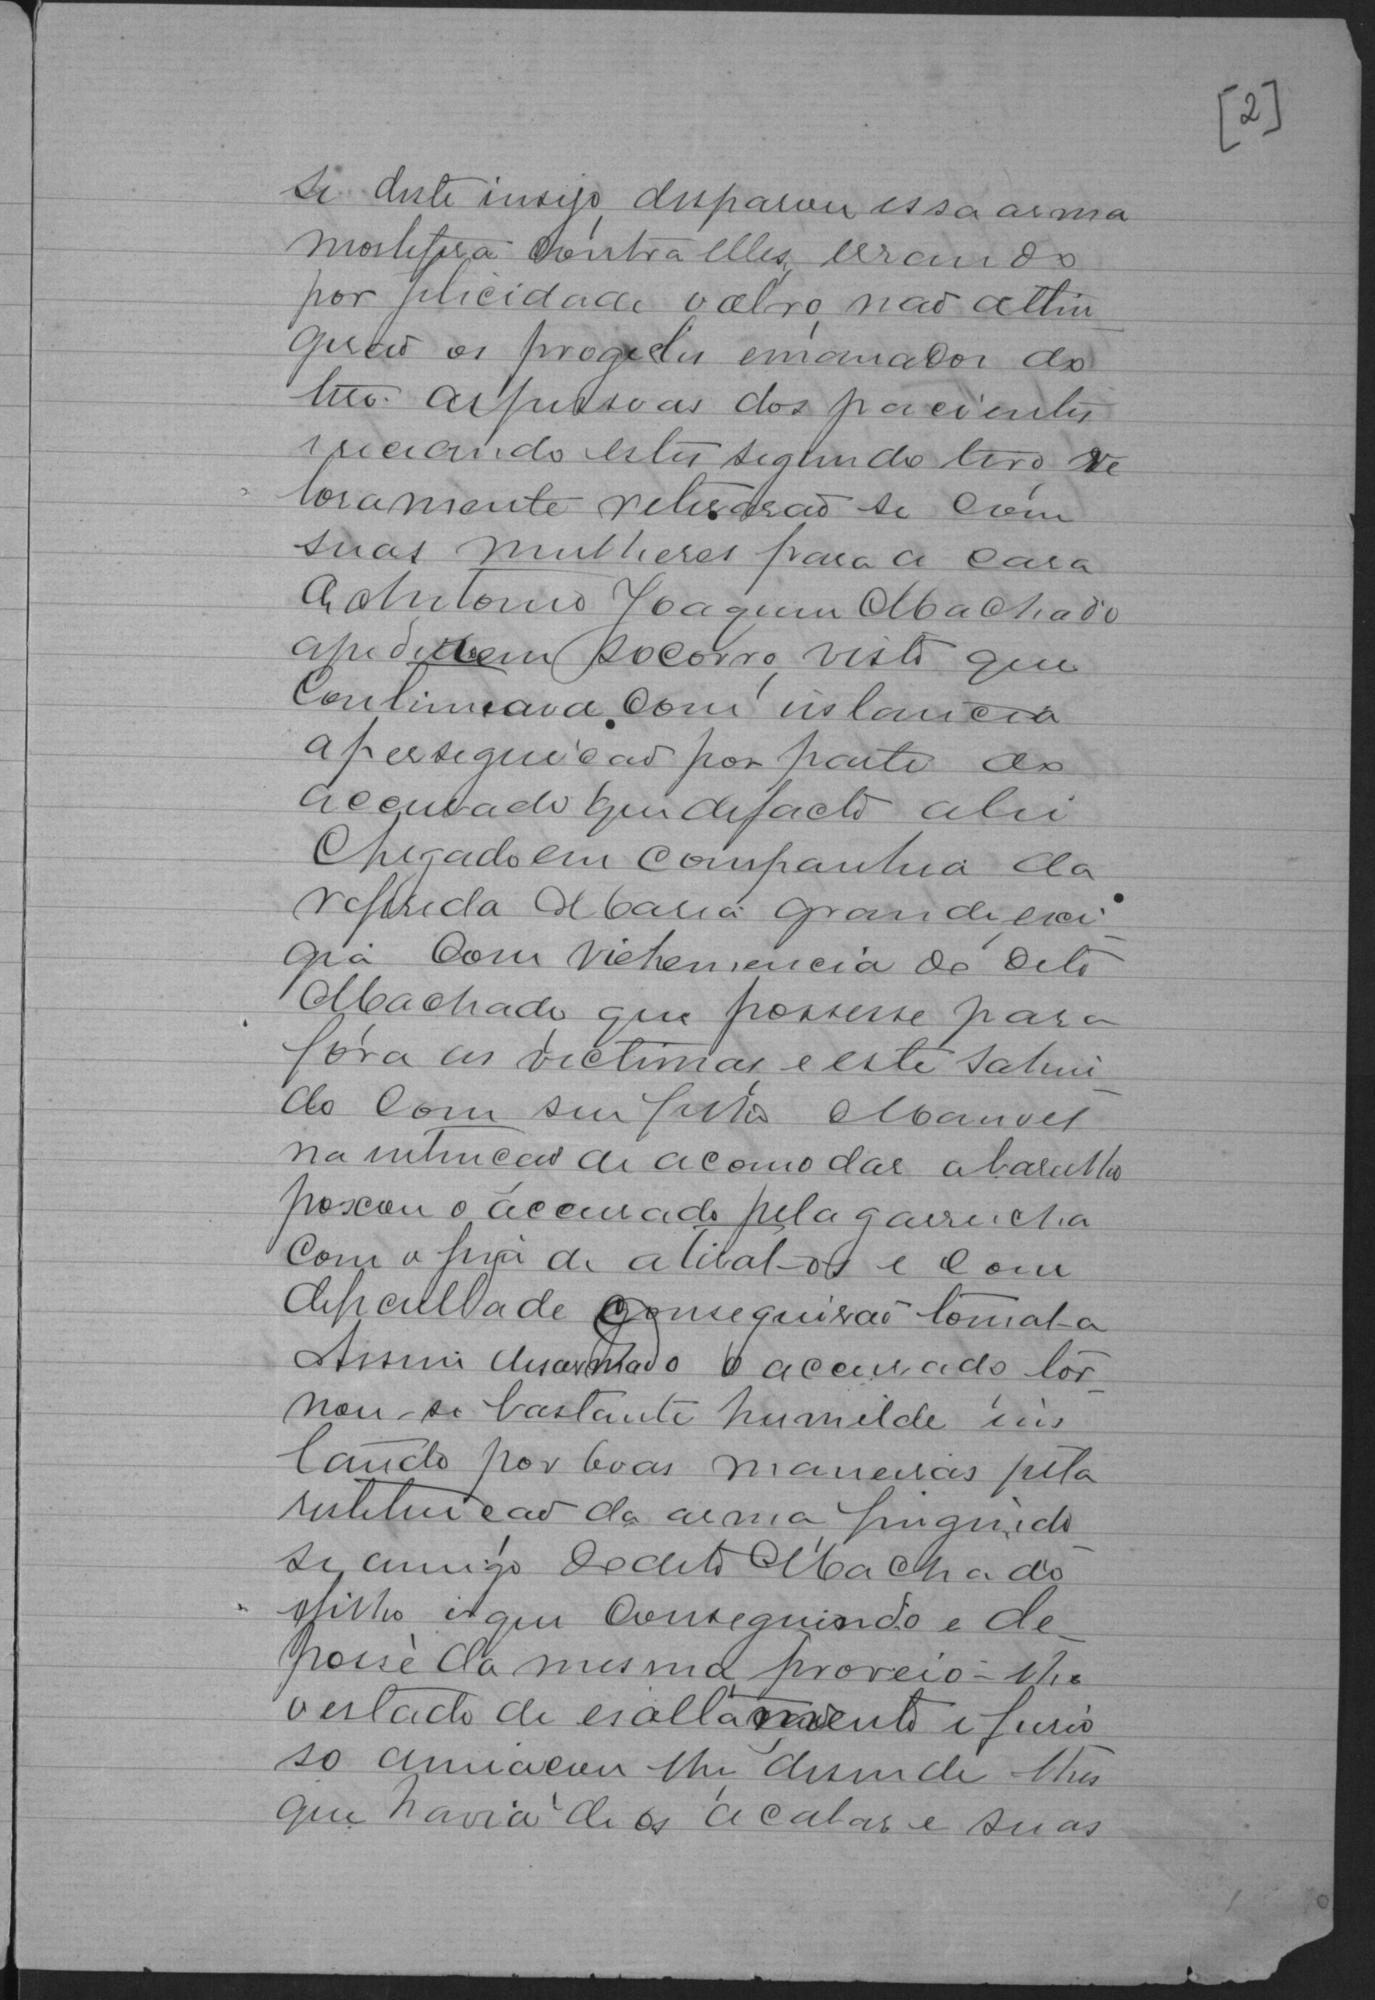 [2]
se deste insejo, disparou essa arma
mortifera contra elles, errando
por filicidade o alvo, naõ attin
giraõ os progetis emanados do
tiro as pessoas dos pacientes
receiando estes segundo tiro, ve
lozamente retiraraõ se com
suas mulheres para a casa
de Antonio Joaquim Machado
apedirem socorro, visto que
continuava com istancia
apersequicaõ por parte do
accusado que defacto ahi
chegado em companhia da
referida Maria Grande, exi-
gia com viehemencia do dito
Machado que possesse para
fóra as victimas, e este sahin-
do com seu filho Manoel
na intencaõ de acomodar abarulho
poxou o accusado pela garrucha
com o fim de atiral-os e com
deficulldade conseguiraõ tomal-a
Assim desarmado o accusado tor-
nou-se bastante humilde ins
tando por boas maneiras pela
restituicaõ da arma, fingindo
se amigo do dito Machado
filho e que conseguindo e de-
posse da mesma, proveio-lhe
o estado de esaltamento e furio
so amiacou lhe disende-lhes
que havia de os acabar e suas